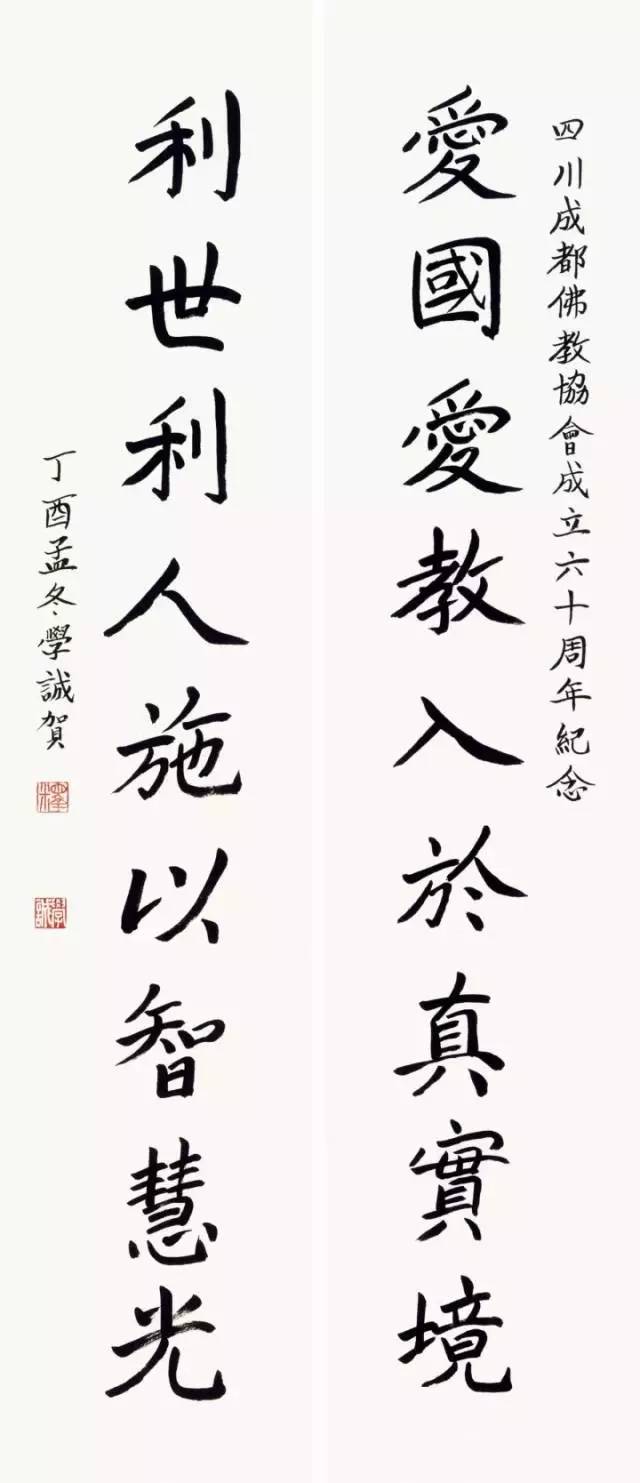 四川成都佛教協會成立六十周年紀念
愛國愛教入於真實境
利世利人施以智慧光
丁酉孟冬學誠賀
釋
學誠